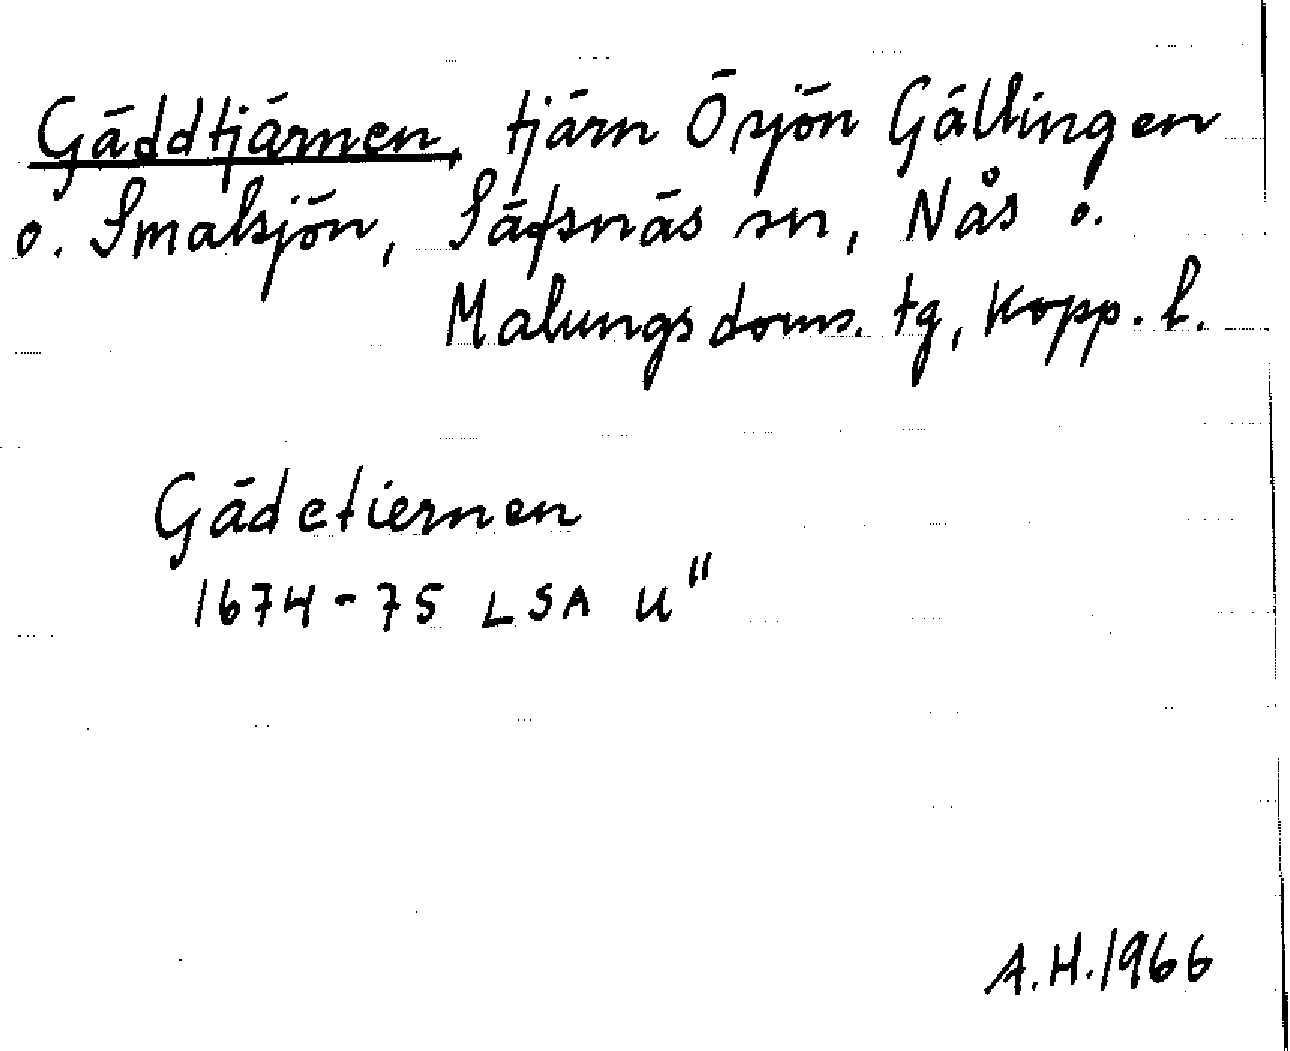 Gäddtjärnen, tjärn Örsjön Gällingen
o. Smalsjön, Säfsnäs sn, Nås o.
Malungs doms. tg, Kopp. l.
Gädetiernen
1674-75 LSA U"
A.H. 1966